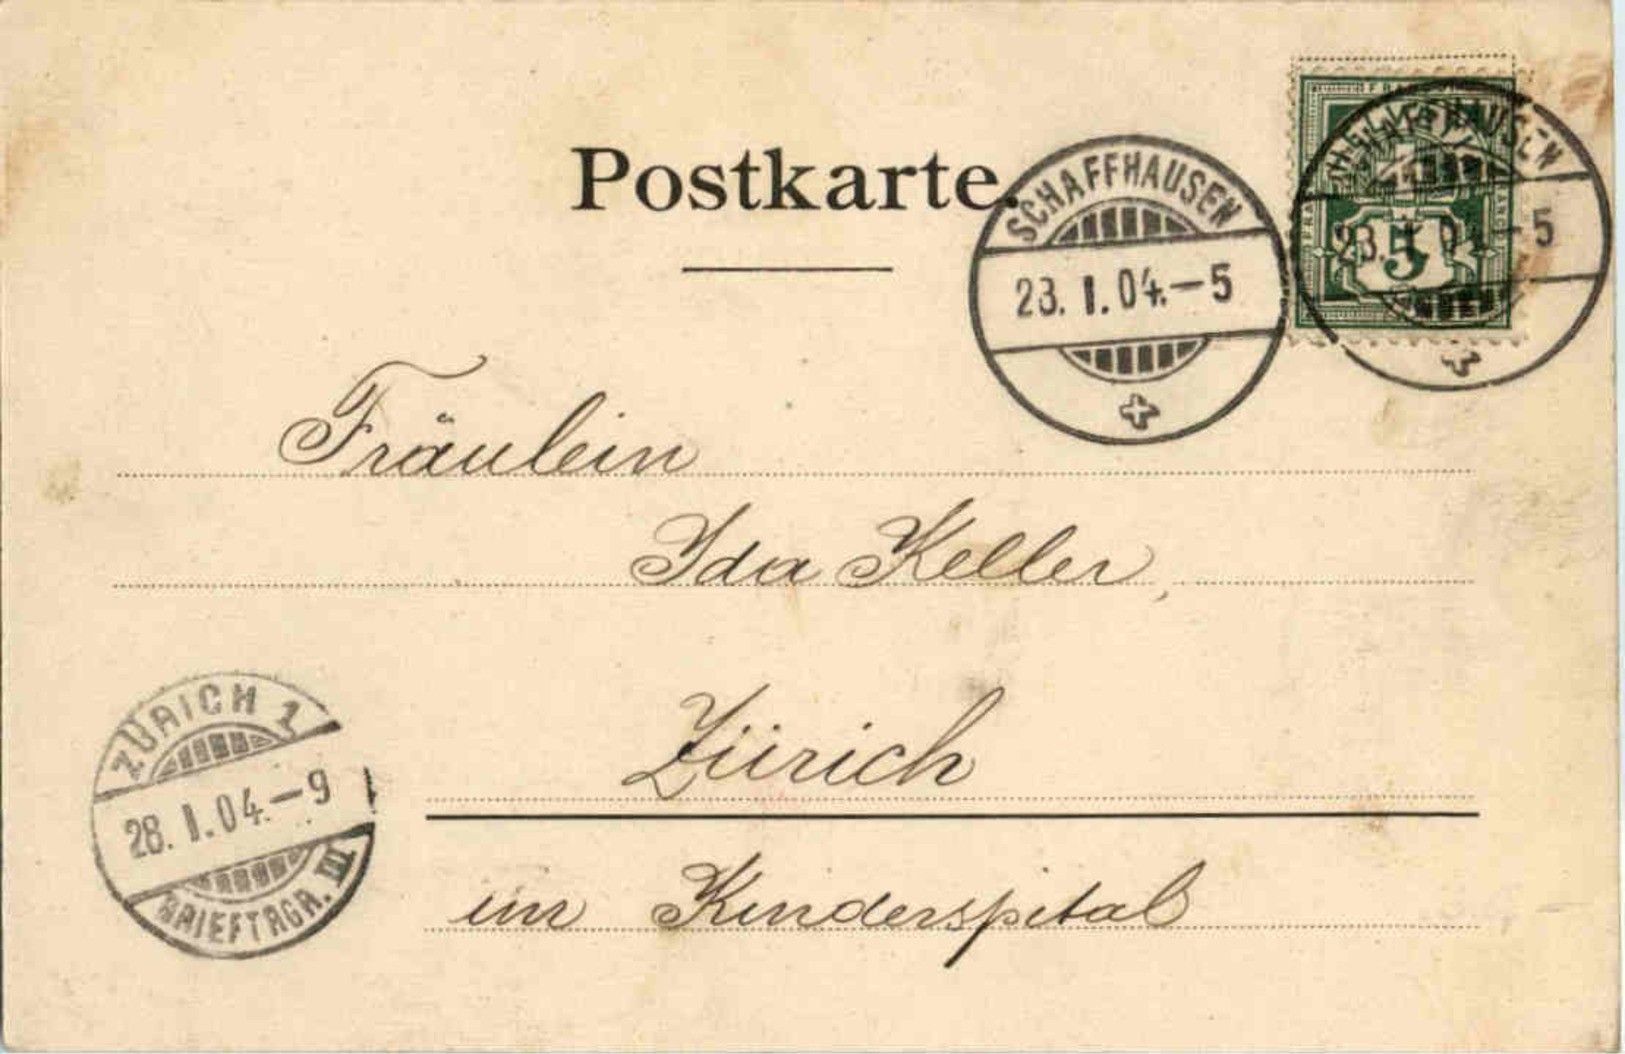 Postkarte.
SCHAFFHAUSEN
23. I. 04.–5
HELVETIA
FRANCO
5
SCHAFFHAUSEN
23. I. 04.–5
Fräulein
Ida Keller,
Zürich
im Kinderspital
ZÜRICH 1
28. I. 04.–9
BRIEFTRGR. III